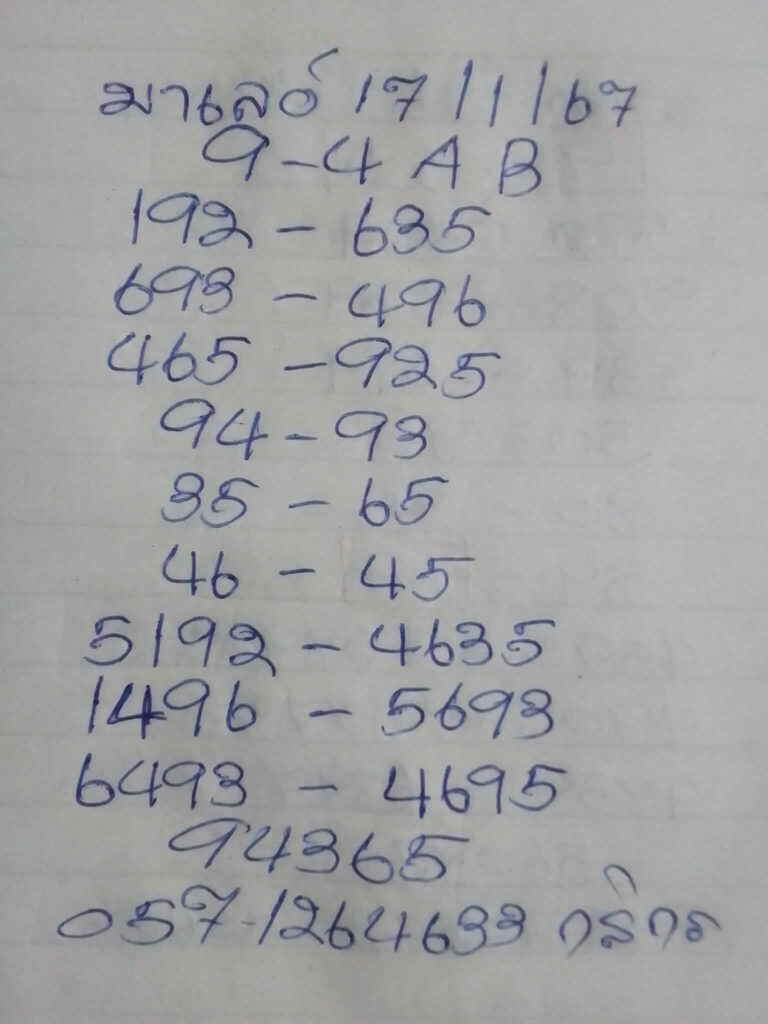 มาเลย์ 17/1/67
9-4 A B
192 - 635
693 - 496
465 - 925
94 - 93
35 - 65
46 - 45
5192 - 4635
1496 - 5693
6493 - 4695
94365
057-1264633